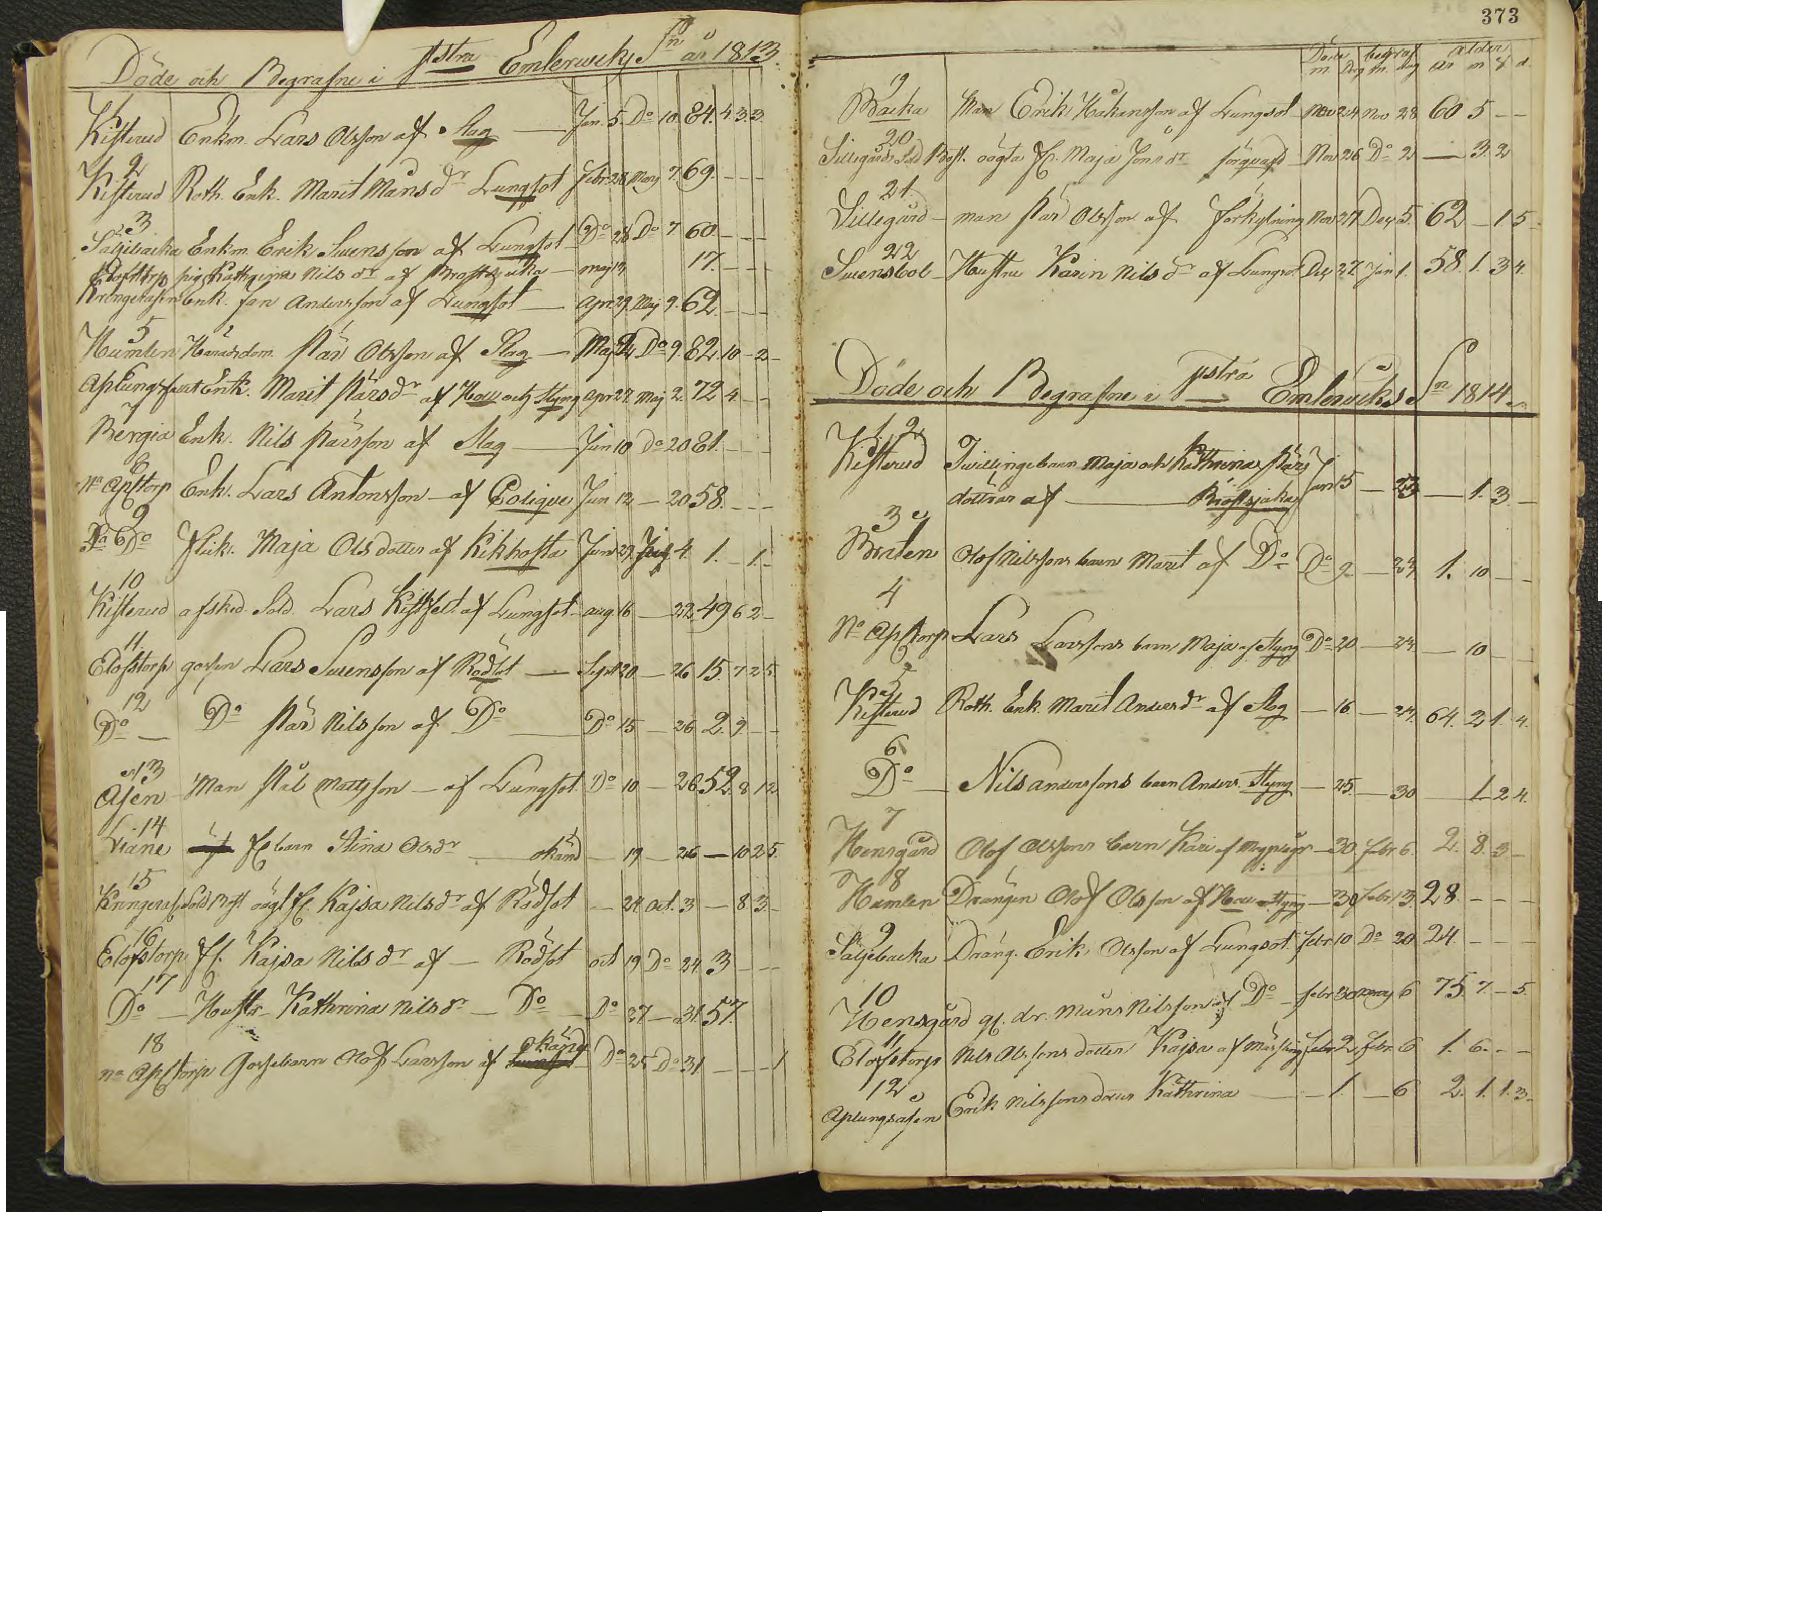 Döde och Begrafne i östra Emterwiks Sn år 1813.
1
Kisterud Enkm. Lars Olsson af Slag — Jan. 5. Do 10. 84. 4. 3. 3.
2
Kisterud Roth. Enk. Marit Månsdr Lungsot Febr 28 Mars 7. 69. - - -
3
Säljebacka Enkm. Erik Svensson af Lungsot Do 28 Do 7 60 - - -
Elofstorp pig. Kathrina Nilsdr af Bröstsjuka — maj 19. 17. - - -
Enk. Jan Andersson af Lungsot — Apr. 29. Maj 9. 62. - - -
5
Humlen Häradsdom. Pär Olsson af Slag — Maj Do 9. 82. 10 - 2 -
Enk. Marit Pärsdr af Håll och Styng Apr 27. Maj 2. 72 4 - -
7
Bergia Enk. Nils Pärsson af Slag — Jun 10 Do 20 81. - - -
8
No Apstorp Enk. Lars Antonsson — af Colique Jun 12 — 20 58. - - -
9
Do Do Flik. Maja Olsdotter af Kikhosta Jun 27. 4. 1. - 1. -
10
Kisterud afsked. Sold. Lars af Lungsot aug 16 — 22 49 6 2 -
11
Elofstorp gossen Lars Svensson af Rödsot — Sept 20 — 26 15. 7 2 5.
12
Do — Do Pär Nilsson af Do — Do 15 — 26 2. 9 - -
13
Åsen Man Pål Mattsson — af Lungsot Do 10 — 26 52. 8 1 2
14
Viane af barn Stina Olsdr — okänd — 19 — 26 — 10 2 5.
15
Sold. Kajsa Nilsdr af Rödsot — 24 Oct. 3 — 8 3. -
16
Elofstorp Fl. Kajsa Nilsdr af — Rödsot Oct 19 Do 24. 3 - - -
17
Do — Hustr. Kathrina Nilsdr — Do — Do 27 — 31 57.
18
okänd
No Apstorp Gossebarn Olof Larsson af Lungsot Do 25 Do 31 - - - 1
373
Döde begraf ålder
m. Dag m. dag år m v d.
19
Backa Man Erik Håkansson af Lungsot Nov 24 Nov 28 60 5 - -
20
oägta Maja Jonsdr Nov 26 Do 2 — 3. 2
21.
Sillegård — man Pär Olsson af förkylning Nov 27 Dec 5. 62 - 1 5 -
22
Svensbol — Hustru Karin Nilsdr af Lungsot Dec 27. Jan 1. 58. 1. 3 4.
Döde och Begrafne i östra Emterwiks Sn 1814.
1. 2.
Kisterud Twillingebarn Maja och Kathrina Pärs
döttrar af — Bröstsjuka Jan 5 — 23 — 1. 3. -
3
Bråten Olof Nilssons barn Marit af Do Do 9 — 23 1. 10 - -
4
No Apstorp Lars Larssons barn Maja af Styng Do 20 — 23 — 10 - -
5
Kisterud Roth. Enk. Marit Andersdr af Slag — 16 — 23. 64. 2 1. 4.
6
Do — Nils Anderssons barn Anders. Styng — 25. — 30 — 1 2 4.
7
Hensgård Olof Olssons barn Kari af — 30 Febr 6. 2. 8. 3 -
8
Humlen Drängen Olof Olsson af Håll o. Styng — 30 Febr 13. 28. - - -
9
Säljebacka Dräng. Erik Olsson af Lungsot. Febr 10 Do 20 24. - - -
10
Hensgård gl. dr. Måns Nilsson af Do — Febr 6 75. 7. - 5.
11
Elofstorp Nils Olssons dotter Kajsa af Febr 2 Febr 6 1. 6. - -
12
Aplungsåsen Erik Nilssons Kathrina — 1. — 6 2. 1. 1. 3.